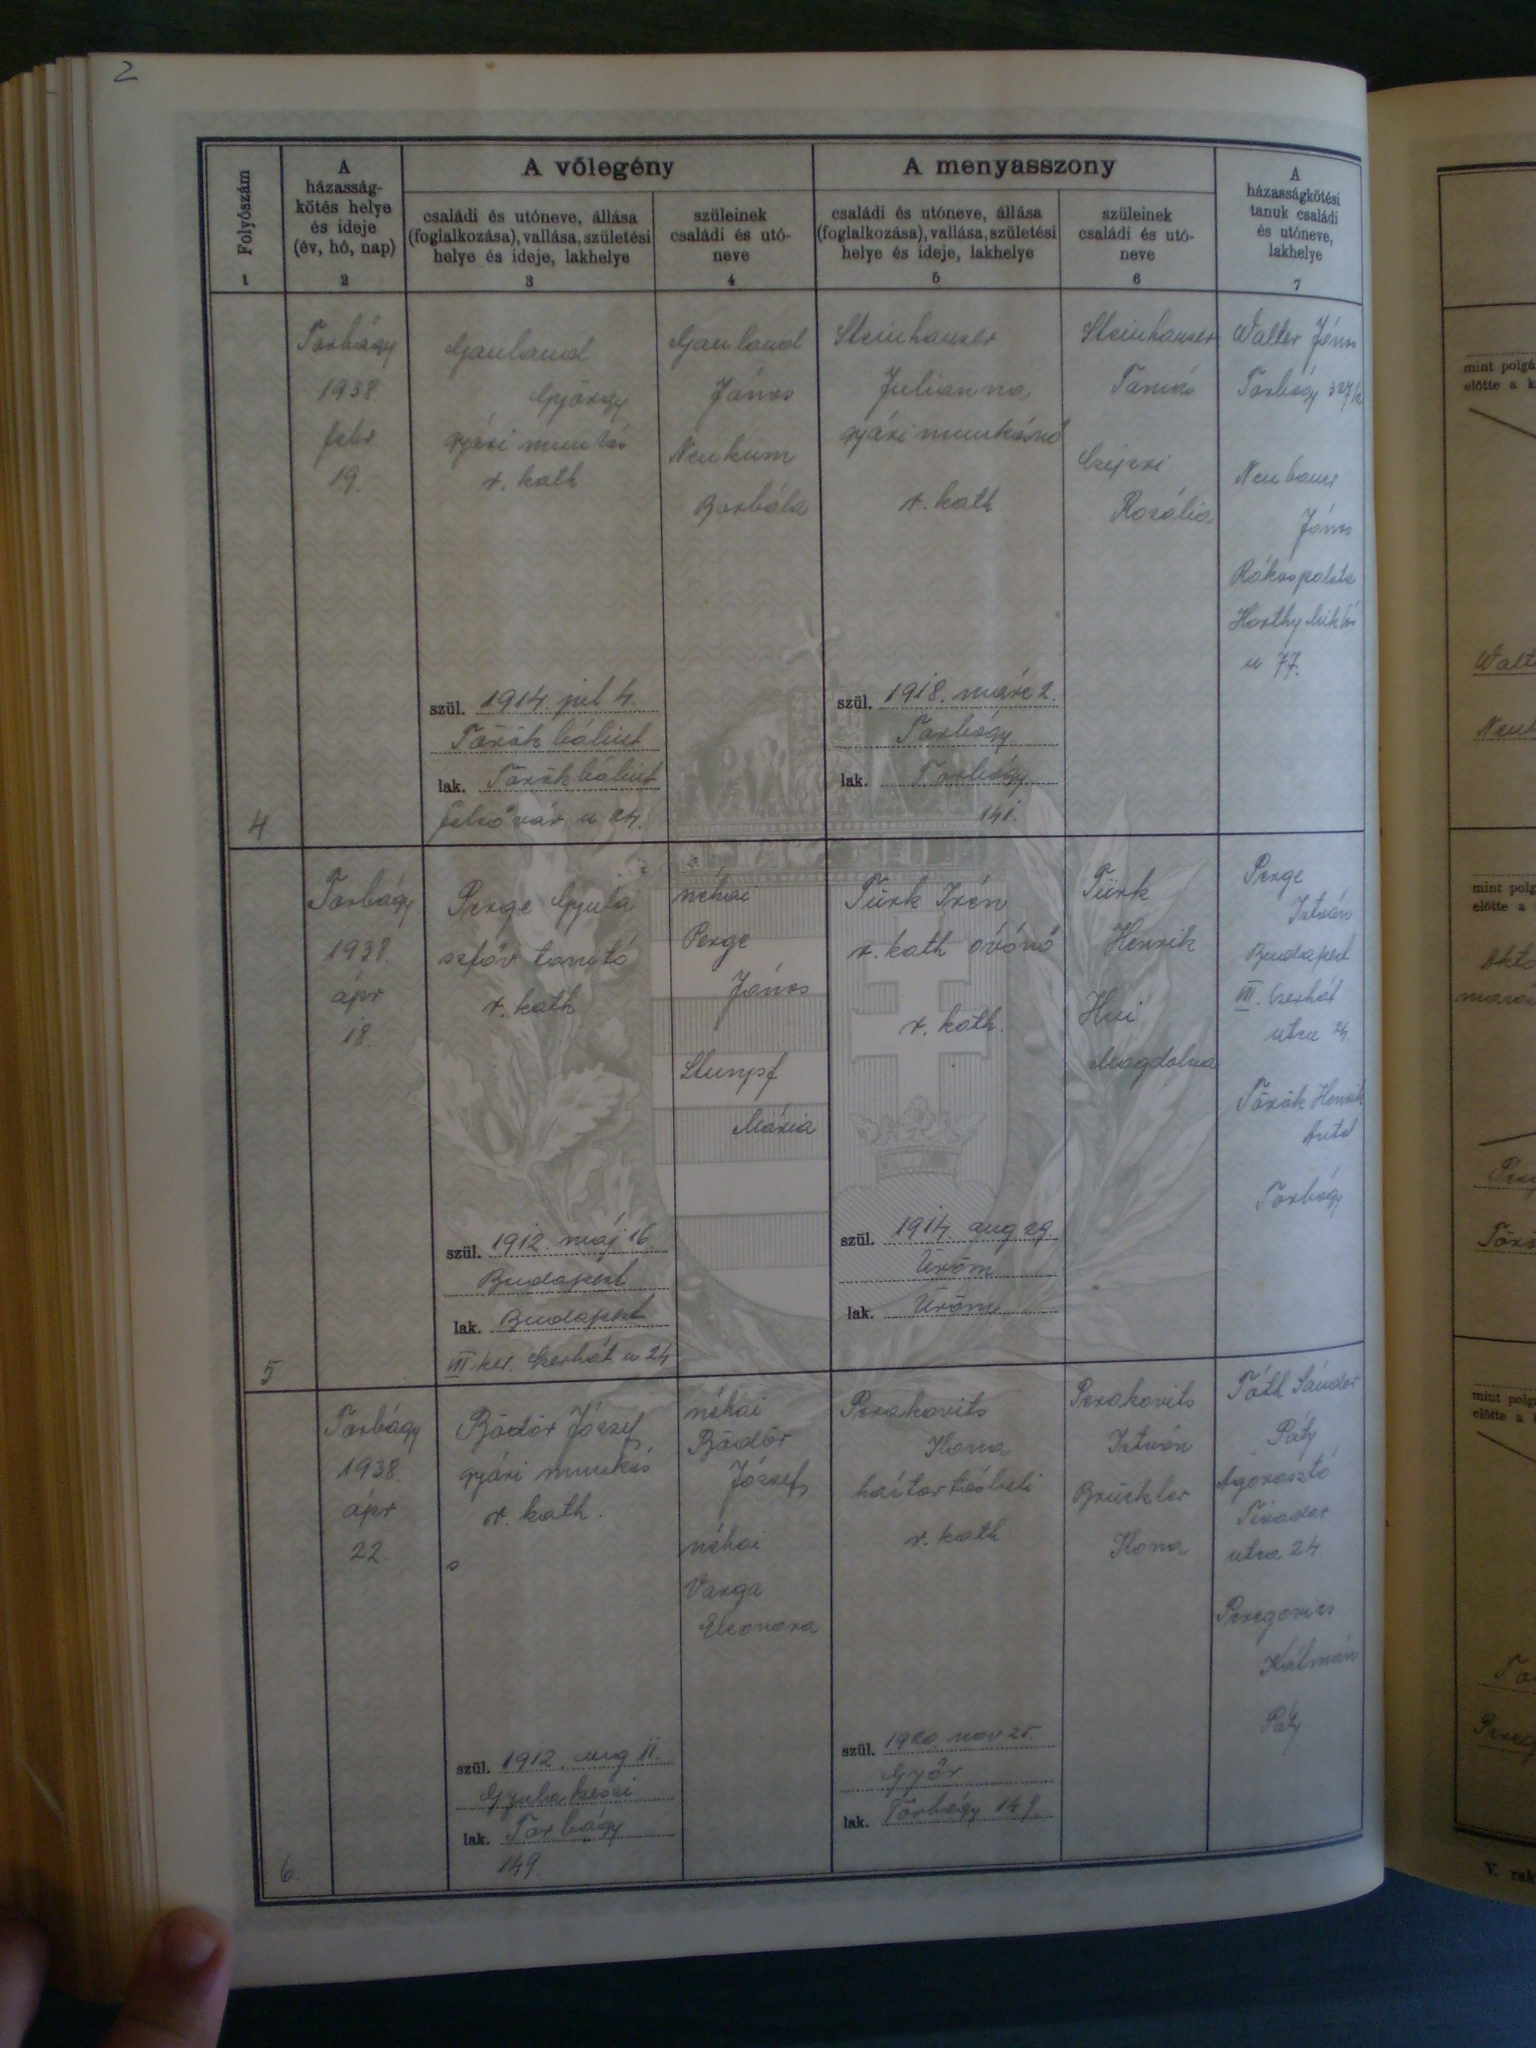 2
Folyószám
1
A
házasság-
kötés helye
és ideje
(év, hó, nap)
2
A vőlegény
családi és utóneve, állása
(foglalkozása), vallása, születési
helye és ideje, lakhelye
3
szüleinek
családi és utó-
neve
4
A menyasszony
családi és utóneve, állása
(foglalkozása), vallása, születési
helye és ideje, lakhelye
5
szüleinek
családi és utó-
neve
6
A
házasságkötési
tanuk családi
és utóneve,
lakhelye
7
4
Torbágy
1938.
febr
19.
Gauland
György
gyári munkás
r. kath
szül. 1914. jul 4.
Törökbálint
lak. Törökbálint
felsővár u 24.
Gauland
János
Neukum
Borbála
Steinhauser
Julianna
gyári munkásnő
r. kath
szül. 1918. márc 2.
Torbágy
lak. Torbágy
141.
Steinhauser
Tamás
Rozália
Walter János
Torbágy 327/a
Neubauer
János
Rákospalota
Horthy Miklós
u 77.
5
Torbágy
1938.
ápr
18.
Perge Gyula
szföv tanító
r. kath
szül. 1912. máj 16.
Budapest
lak. Budapest
VII ker. Cserhát u 24
néhai
Perge
János
Stumpf
Mária
Türk Irén
r. kath óvónő
r. kath.
szül. 1914. aug 29
Üröm
lak. Üröm
Türk
Henrik
Hui
Magdolna
Perge
István
Budapest
VII. Cserhát
utca 24.
Török Henrik
Antal
Torbágy
6.
Torbágy
1938.
ápr
22
Bödör József
gyári munkás
r. kath.
szül. 1912. aug 11.
Gyulakeszi
lak. Torbágy
149.
néhai
Bödör
József
néhai
Varga
Eleonora
Perakovits
Ilona
háztartásbeli
r. kath
szül. 1920. nov 25.
Győr
lak. Torbágy 149.
Perakovits
István
Brückler
Ilona
Tóth Sándor
Páty
utca 24.
Peregovics
Kálmán
Páty
mint polgá
előtte a k
mint polg
előtte a
mint polg
előtte a
V. rak